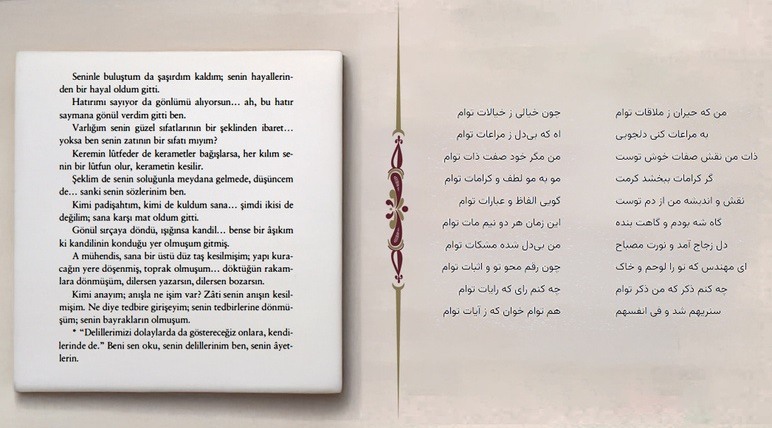 Seninle buluştum da şaşırdım kaldım; senin hayallerin-
den bir hayal oldum gitti.
Hatırımı sayıyor da gönlümü alıyorsun... ah, bu hatır
saymana gönül verdim gitti ben.
Varlığım senin güzel sıfatlarının bir şeklinden ibaret...
yoksa ben senin zatının bir sıfatı mıyım?
Keremin lûtfeder de kerametler bağışlarsa, her kılım se-
nin bir lûtfun olur, kerametin kesilir.
Şeklim de senin soluğunla meydana gelmede, düşüncem
de... sanki senin sözlerinim ben.
Kimi padişahtım, kimi de kuldum sana... şimdi ikisi de
değilim; sana karşı mat oldum gitti.
Gönül sırçaya döndü, ışığınsa kandil... bense bir âşıkım
ki kandilinin konduğu yer olmuşum gitmiş.
A mühendis, sana bir üstü düz taş kesilmişim; yapı kura-
cağın yere döşenmiş, toprak olmuşum... döktüğün rakam-
lara dönmüşüm, dilersen yazarsın, dilersen bozarsın.
Kimi anayım; anışla ne işim var? Zâti senin anışın kesil-
mişim. Ne diye tedbire girişeyim; senin tedbirlerine dönmü-
şüm; senin bayrakların olmuşum.
* "Delillerimizi dolaylarda da göstereceğiz onlara, kendi-
lerinde de." Beni sen oku, senin delillerinim ben, senin âyet-
lerin.
من که حیران ز ملاقات توام چون خیالی ز خیالات توام
به مراعات کنی دلجویی اه که بی‌دل ز مراعات توام
ذات من نقش صفات خوش توست من مگر خود صفت ذات توام
گر کرامات ببخشد کرمت مو به مو لطف و کرامات توام
نقش و اندیشه من از دم توست گویی الفاظ و عبارات توام
گاه شه بودم و گاهت بنده این زمان هر دو نیم مات توام
دل زجاج آمد و نورت مصباح من بی‌دل شده مشکات توام
ای مهندس که تو را لوحم و خاک چون رقم محو تو و اثبات توام
چه کنم ذکر که من ذکر توام چه کنم رای که رایات توام
سنریهم شد و فی انفسهم هم توام خوان که ز آیات توام